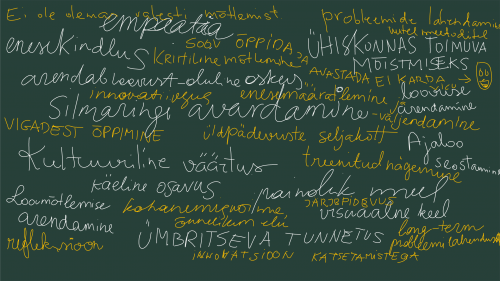 Ei ole olemas valesti mõtlemist
empaatia
probleemide lahendamine
mitmel meetodil
enesekindlus
SOOV ÕPPIDA
ÜHISKONNAS TOIMUVA
MÕISTMISEKS
Kriitiline mõtlemine
arendab loovust - oluline oskus
AVASTADA EI KARDA
innovatiivsus
enesemääratlemine
loovuse
arendamine
Silmaringi avardamine
väljendamine
VIGADEST ÕPPIMINE
üldpädevuste seljakott
Ajaloo
seostamine
Kultuuriline väärtus
treenitud nägemine
käeline osavus
paindlik meel
Loovmõtlemise
arendamine
kohanemisvõime
JÄRJEPIDEVUS
visuaalne keel
õnnelikum elu
refleksioon
ÜMBRITSEVA TUNNETUS
long-term
probleemilahendus
INNOVATSIOON
KATSETAMISTEGA